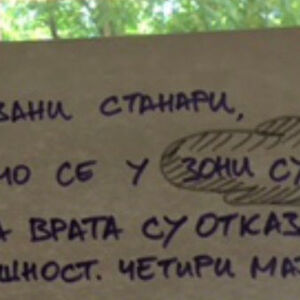 ВАНИ СТАНАРИ,
МО СЕ У ЗОНИ СУ
А ВРАТА СУ ОТКАЗ
ШНОСТ. ЧЕТИРИ МА